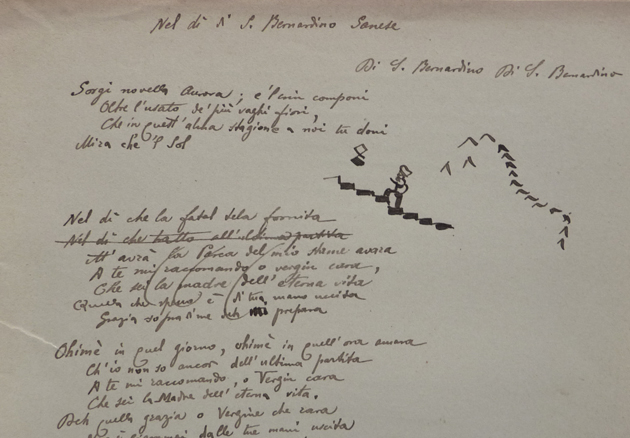 Nel dì di S. Bernardino Sanese
Di S. Bernardino Di S. Bernardino
Sorgi novella Aurora; e 'l crin componi
Oltre l'usato de' più vaghi fiori,
Che in quest'alma stagione a noi tu doni
Mira che 'l Sol
Nel dì che la fatal tela fornita
Nel dì che tratto all'ultima partita
M'avrà la Parca del mio stame avara
A te mi raccomando o vergin cara,
Che sei la madre dell'eterna vita
Quella che è di tua mano uscita
Grazia deh prepara
Ohimè in quel giorno, ohimè in quell'ora amara
Ch'io non so ancor dell'ultima partita
A te mi raccomando, o Vergin cara
Che sei la Madre dell'eterna vita.
Deh quella grazia o Vergine che rara
dalle tue mani uscita